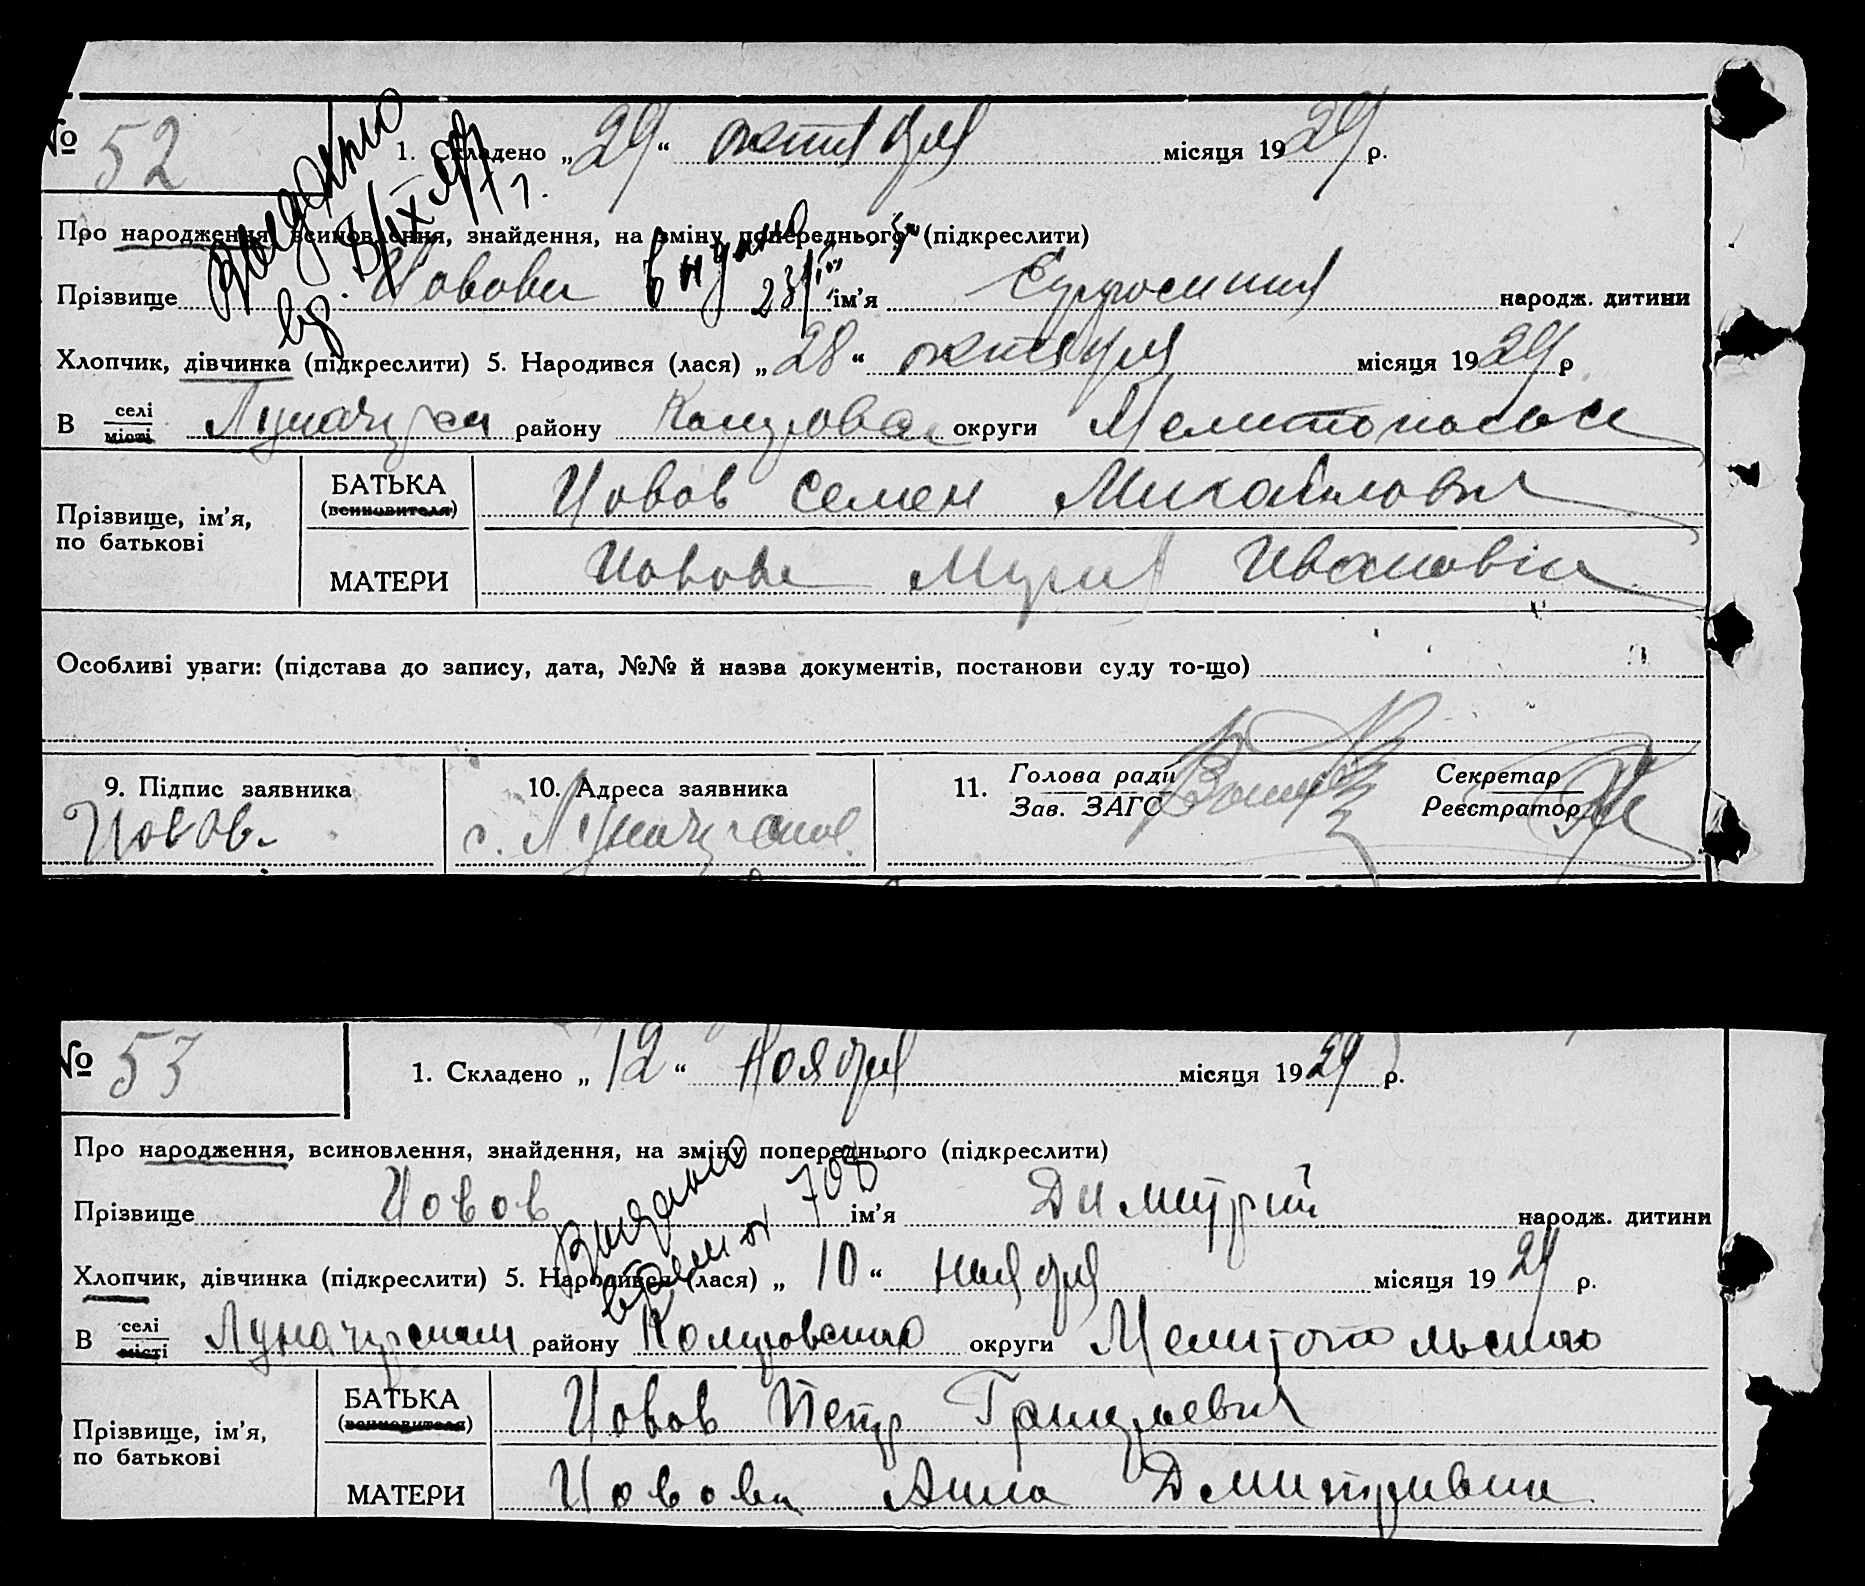 № 52
1. Складено „29“ октября місяця 1929 р.
Про народження, всиновлення, знайдення, на зміну попереднього (підкреслити)
Прізвище Цовова ім’я Ефросиния народж. дитини
Хлопчик, дівчинка (підкреслити) 5. Народився (лася) „28“ октября місяця 1929 р
В селі місті района району округи Мелитопольск
Прізвище, ім’я, по батькові
БАТЬКА (всиновителя) Цовов Семен Михайлович
МАТЕРИ Цовова Мария Ивановна
Особливі уваги: (підстава до запису, дата, №№ й назва документів, постанови суду то-що)
9. Підпис заявника
Цовов.
10. Адреса заявника
с. Луначарское.
11. Голова ради
Зав. ЗАГС
Секретар
Реєстратор
выдано
№ 53
1. Складено „12“ Ноября місяця 1929 р.
Про народження, всиновлення, знайдення, на зміну попереднього (підкреслити)
Прізвище Цовов ім’я Димитрий народж. дитини
Хлопчик, дівчинка (підкреслити) 5. Народився (лася) „10“ ноября місяця 1929 р.
В селі місті Луначарском району округи Мелитопольско
Прізвище, ім’я, по батькові
БАТЬКА (всиновителя) Цовов Петр Григорьевич
МАТЕРИ Цовова Анна Дмитривна
Выдано